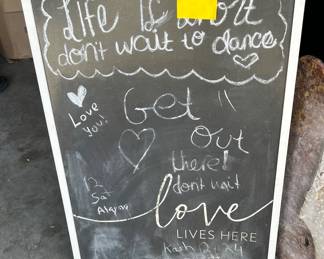 Life is short
don't wait to dance
Love
you!
Get "
out
there!
dont wait
12
Sat
love
LIVES HERE